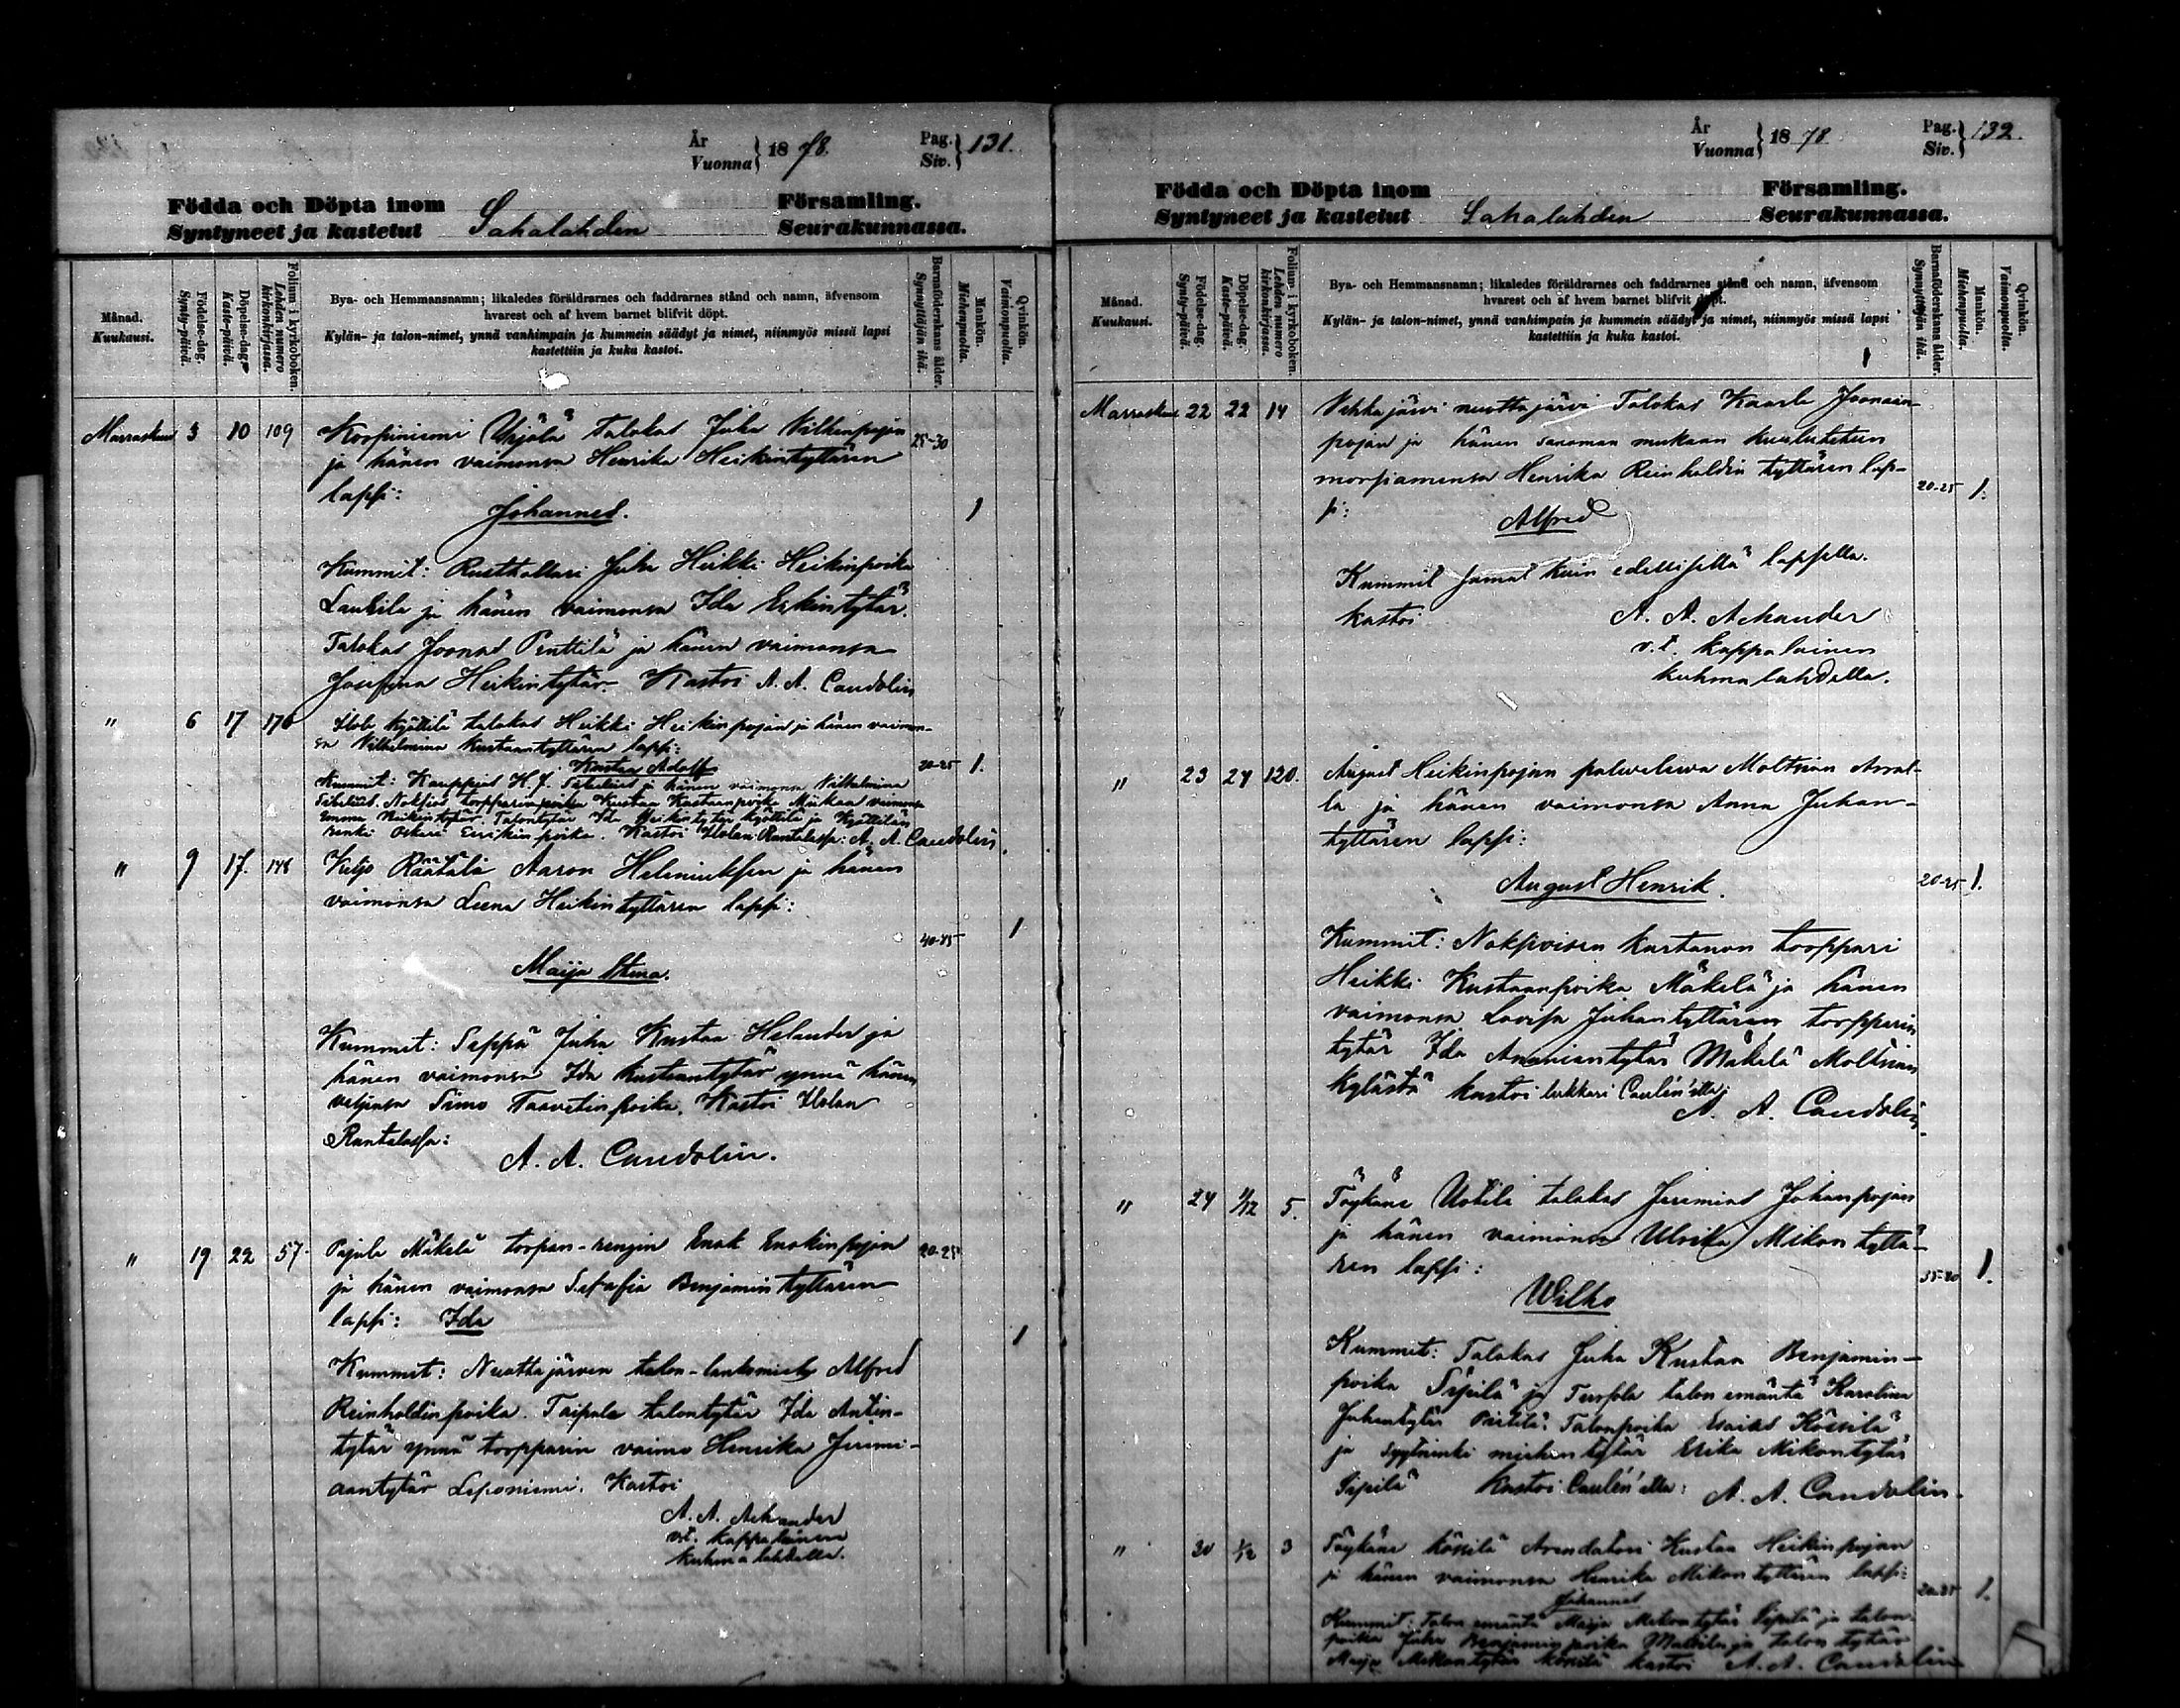 År
Vuonna } 18 78.
Pag.
Siv. } 131.
Födda och Döpta inom Församling.
Syntyneet ja kastetut Sahalahden Seurakunnassa.
Månad.
Kuukausi.
Födelse-dag.
Synty-päivä.
Döpelse-dag.
Kaste-päivä.
Folium i kyrkoboken.
Lehden numero kirkonkirjassa.
Bya- och Hemmansnamn; likaledes föräldrarnes och faddrarnes stånd och namn, äfvensom
hvarest och af hvem barnet blifvit döpt.
Kylän- ja talon-nimet, ynnä vanhimpain ja kummein säädyt ja nimet, niinmyös missä lapsi
kastettiin ja kuka kastoi.
Barnaföderskans ålder.
Synnyttäjän ikä.
Mankön.
Miehenpuolta.
Qvinkön.
Vaimonpuolta.
Marraskuu 3 10 109 Koopinismi Yrjölä talokas Juha Vilhenpojan 25-30
ja hänen vaimonsa Henrika Heikintyttären
lapsi:
Johannes. 1
Kummit: Rusthollari Juha Heikki Heikinpoika
Laurila ja hänen vaimonsa Ida Erkintytär.
Talokas Joonas Penttilä ja hänen vaimonsa
Josefina Heikintytär. Kastoi A. A. Candolin
" 6 17 170 Ilola Kyöttilä talokas Heikki Heikinpojan ja hänen vaimon-
sa Vilhelmina Kustaantyttären lapsi:
Kustaa Adolf 20-25 1.
Kummit: Kauppias H. J. ja hänen vaimonsa Vilhelmina
torpparinpoika Kustaa Kustaanpoika vaimonsa
Emma Heikintytär. Talontytär Ida Heikintytär Kyöttilä ja Kyöttilän
renki Oskari Eerikinpoika. Kastoi Ilolan Rantalassa: A. A. Candolin.
" 9 17. 148 Keljo Räätäli Aaron Heleniuksen ja hänen
vaimonsa Leena Heikintyttären lapsi:
40-45 1
Maija Stina.
Kummit: Seppä Juha Kustaa Helander ja
hänen vaimonsa Ida Kustaantytär ynnä hänen
veljensä Simo Taavetinpoika. Kastoi Ilolan
Rantalassa:
A. A. Candolin.
" 19 22 57. Pajula Mäkelä torpan-rengin Enok Enokinpojan 20-25
ja hänen vaimonsa Serafia Benjamintyttären
lapsi: Ida
1
Kummit: Nuottajärven talon-lankomies Alfred
Reinholdinpoika. Taipale talontytär Ida Antin-
tytär ynnä torpparin vaimo Henrika Jeremi-
aantytär Leponiemi. Kastoi
A. A. Achander
v.t. kappalainen
Kuhmalahdella.
År
Vuonna } 18 78.
Pag.
Siv. } 132.
Födda och Döpta inom Församling.
Syntyneet ja kastetut Sahalahden Seurakunnassa.
Månad.
Kuukausi.
Födelse-dag.
Synty-päivä.
Döpelse-dag.
Kaste-päivä.
Folium i kyrkoboken.
Lehden numero kirkonkirjassa.
Bya- och Hemmansnamn; likaledes föräldrarnes och faddrarnes stånd och namn, äfvensom
hvarest och af hvem barnet blifvit döpt.
Kylän- ja talon-nimet, ynnä vanhimpain ja kummein säädyt ja nimet, niinmyös missä lapsi
kastettiin ja kuka kastoi.
Barnaföderskans ålder.
Synnyttäjän ikä.
Mankön.
Miehenpuolta.
Qvinkön.
Vaimonpuolta.
Marraskuu 22 22 14 Vehkajärvi nuottajärvi Talokas Kaarle Joonaan-
pojan ja hänen sanoman mukaan kuulutetun
morsiamensa Henrika Reinholdin tyttären lap- 20-25 1.
si:
Alfred
Kummit samat kuin edellisellä lapsella.
kastoi A. A. Achander
v.t. kappalainen
Kuhmalahdella.
" 23 24 120. August Heikinpojan palvelewa Moltsian Anni-
la ja hänen vaimonsa Anna Juhan-
tyttären lapsi:
August Henrik. 20-25 1.
Kummit: Nokpoisen kartanon torppari
Heikki Kustaanpoika Mäkelä ja hänen
vaimonsa Lovisa Juhantyttären torpparin
tytär Ida Ananiantytär Mäkelä Moltsian
kylästä kastoi lukkari Caulén'illa
A. A. Candolin.
" 24 1/12 5. Töykänä Uotila talokas Jeremias Johanpojan
ja hänen vaimonsa Ulrika Mikon tyttä-
ren lapsi: 35-40 1.
Wilho
Kummit: Talokas Juha Kustaa Benjamin-
poika Sipilä ja talon emäntä Karolina
Juhantytär Talonpoika Esaias Kössilä
ja miehentytär Erika Mikontytär
Sipilä Kastoi Caulén'illa: A. A. Candolin.
" 30 1/12 3 Töykänä Kössilä Arendatori Kustaa Heikinpojan
ja hänen vaimonsa Henrika Mikontyttären lapsi:
Johannes 1.
Kummit: Talon emäntä Maija Mikontytär Sipilä ja talon-
poika Juha Benjaminpoika Mattila ja talon tytär
Maija Mikkontytär Kössilä kastoi A. A. Candolin